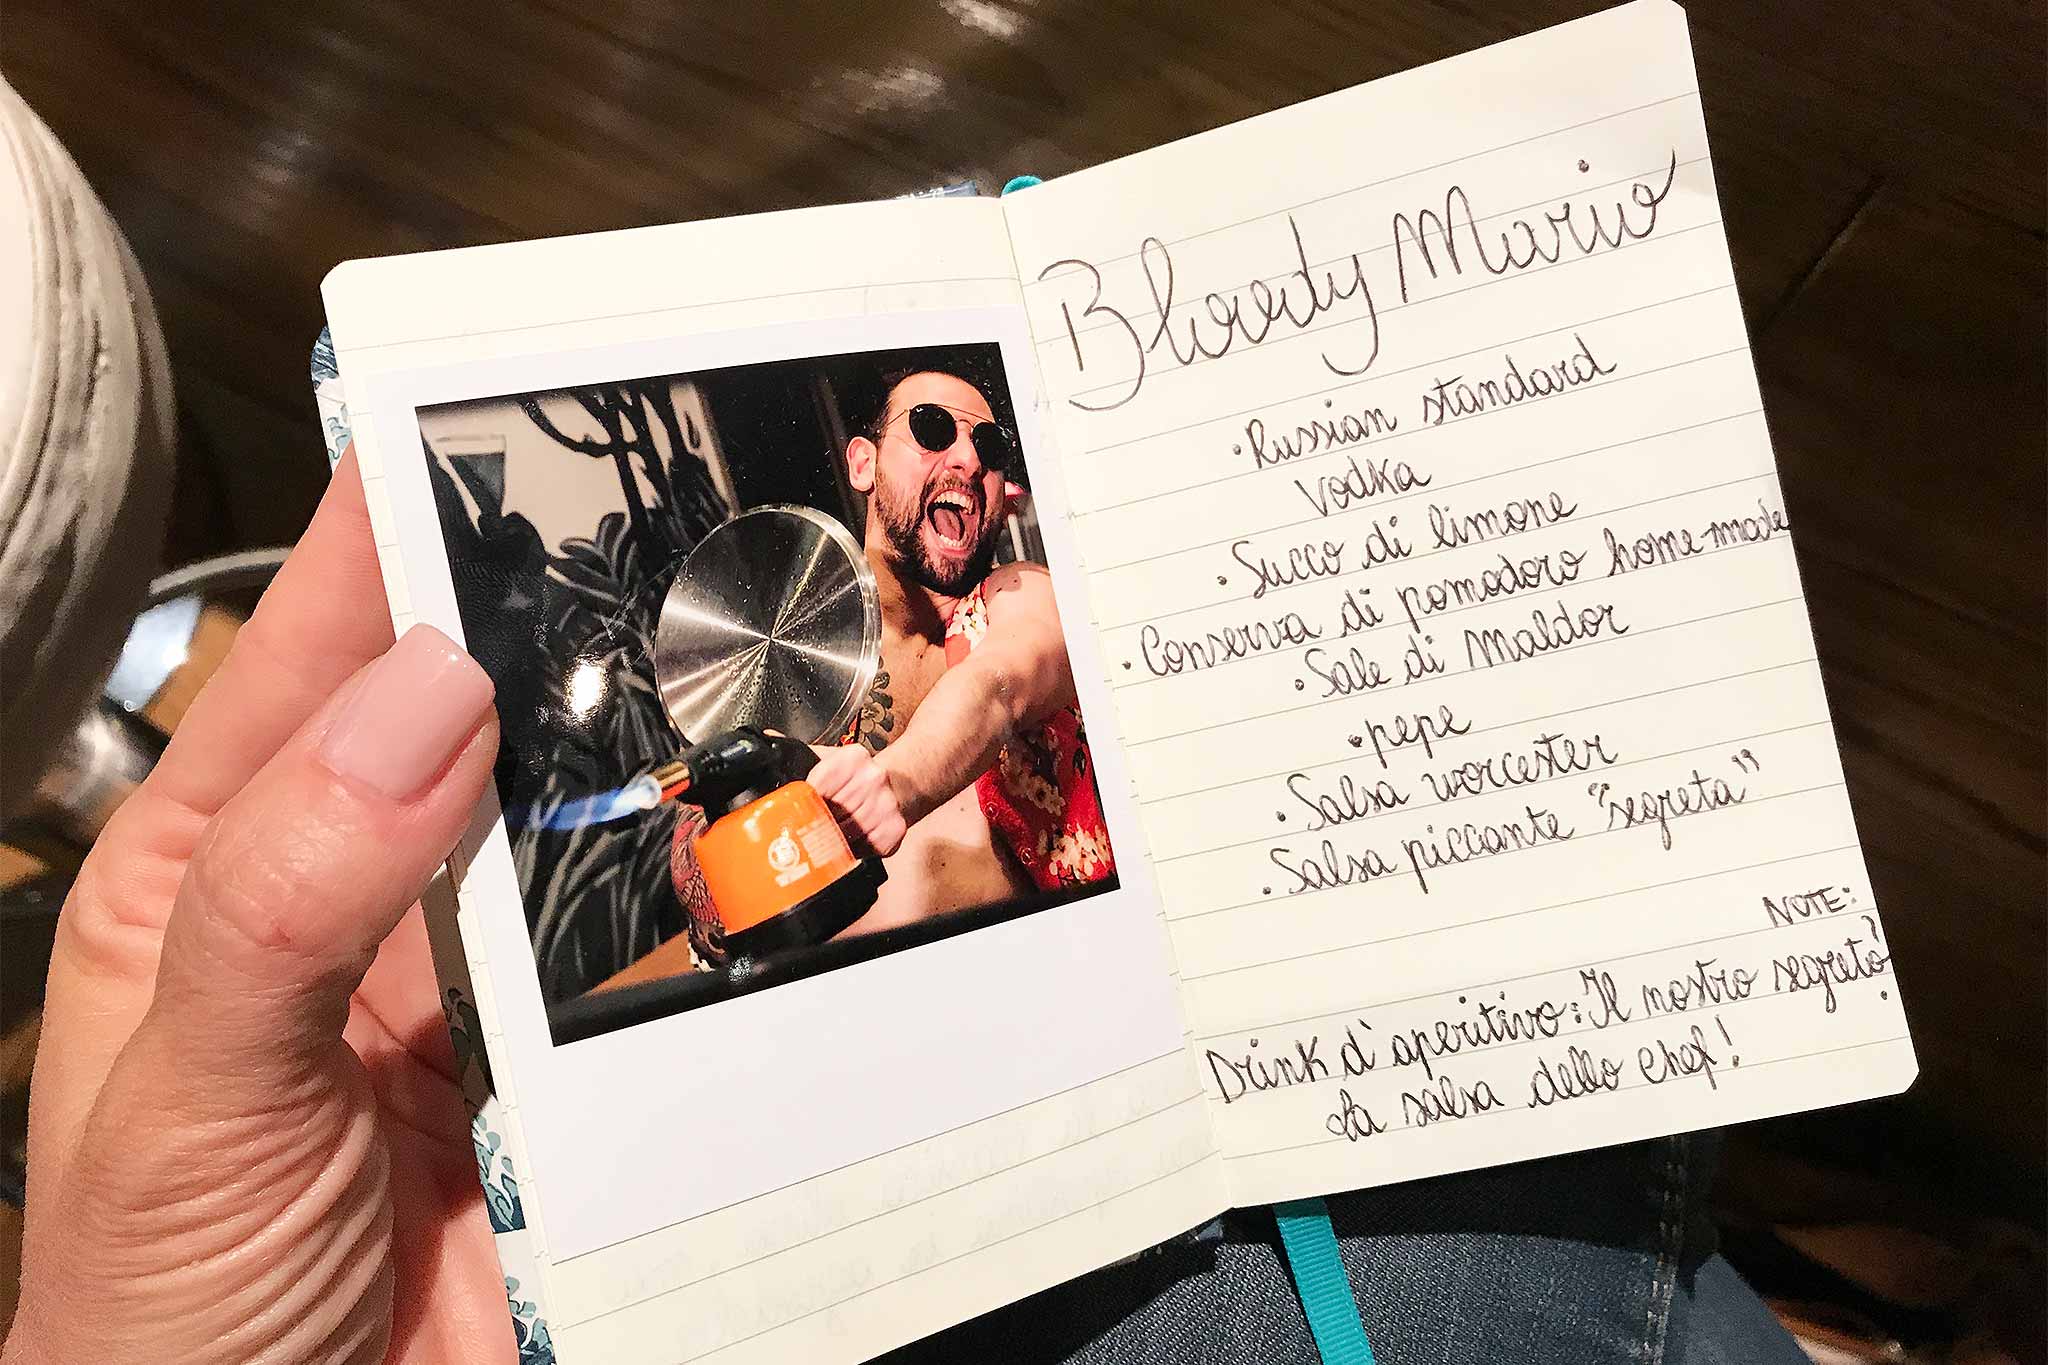 Bloody Mario
• Russian standard
vodka
• Succo di limone
• Conserva di pomodoro home-made
• Sale di Maldor
• pepe
• Salsa worcester
• Salsa piccante "segreta"
NOTE:
Drink d'aperitivo: Il nostro segreto?
La salsa dello chef!